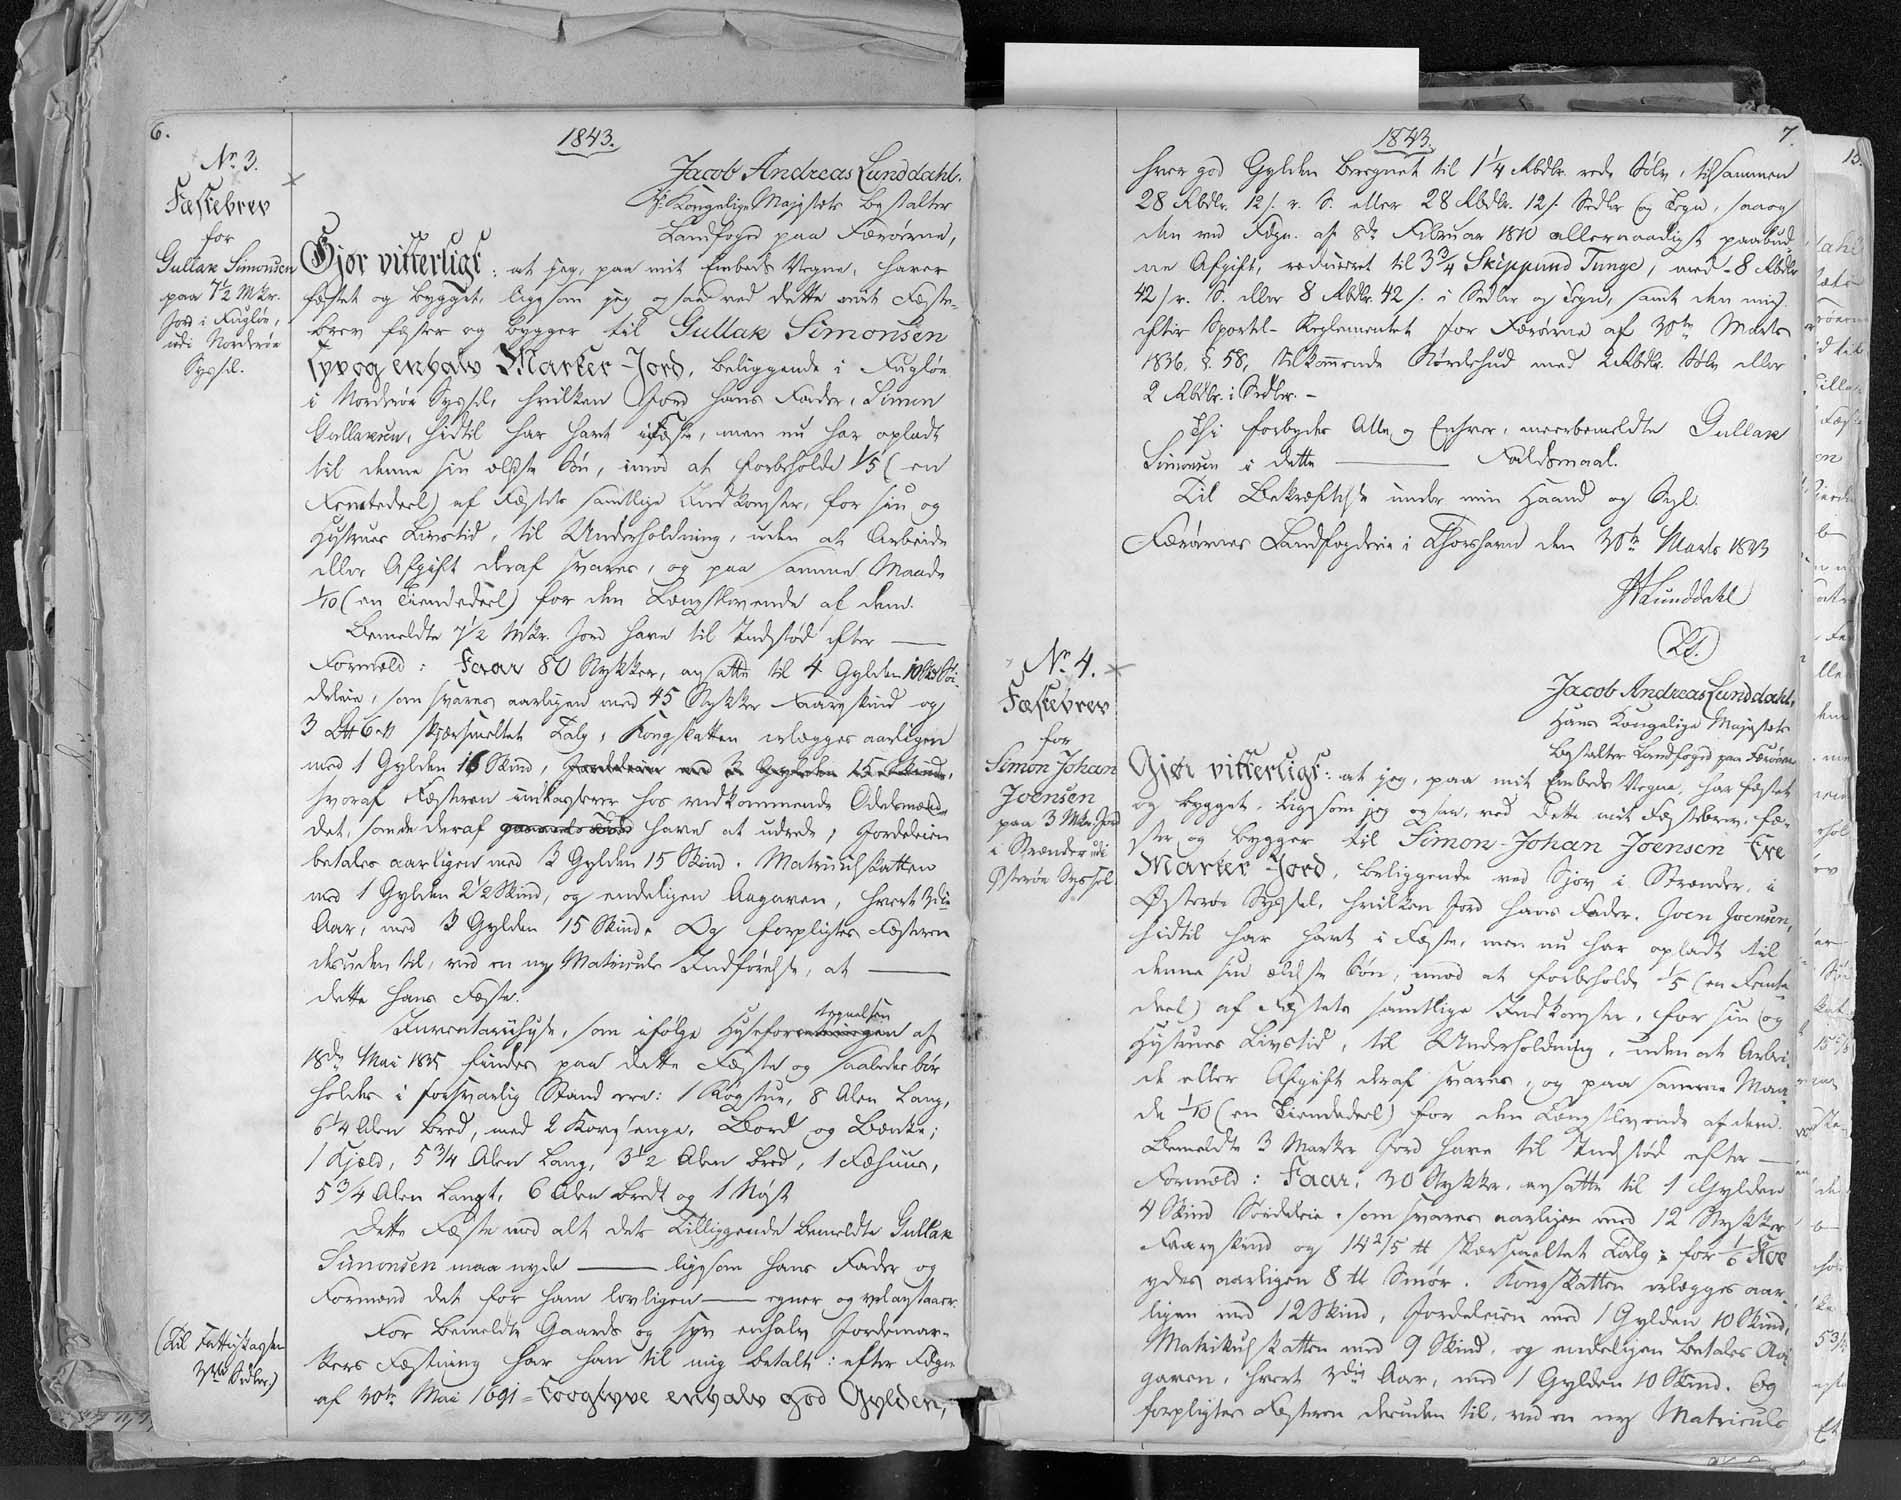 6.
1843.
No. 3.
Fæstebrev
for
Gullak Simonsen
paa 7½ Mkr.
Jord i Fugløe,
udi Norderøe
Syssel.
Jacob Andreas Lunddahl.
Kongelige Majestets Bestalter
Landfoged paa Færøerne,
Gjør vitterligt: at jeg, paa mit Embeds Vegne, haver
fæstet og bygget, ligesom jeg ogsaa ved dette mit Fæste-
brev fæster og bygger til Gullak Simonsen
Syv og enhalv Marker Jord, beliggende i Fugløe
i Norderøe Syssel, hvilken Jord hans Fader, Simon
Gullaksen, hidtil har havt i Fæste, men nu har opladt
til denne sin ældste Søn, imod at forbeholde 1/5 (en
Femtedeel) af Fæstets samtlige Indkomster, for sin og
Hustrues Livstid, til Underholdning, uden at Arbeide
eller Afgift deraf svares, og paa samme Maade
1/10 (en Tiendedeel) for den Længstlevende af dem.
Bemeldte 7½ Mkr. Jord have til Indstød efter —
Formæld: Faar 80 Stykker, ansatte til 4 Gylden 10 Skd Søi-
deleie, som svares aarligen med 45 Stykker Faareskind og
3 skjærsmeltet Talg, Kongskatten erlægges aarligen
med 1 Gylden 16 Skind, Jordeleien med 3 Gylden 15 Skind,
hvoraf Fæsteren indkasserer hos vedkommende Odelsmænd
det, som de deraf have at udrede, Jordeleien
betales aarligen med 3 Gylden 15 Skind. Matriculskatten
med 1 Gylden 2½ Skind, og endeligen Aagaven, hvert 3die
Aar, med 3 Gylden 15 Skind. Og forpligtes Fæsteren
desuden til, ved en ny Matriculs Indførelse, at —
dette hans Fæste.
Inventarii huse, som ifølge Husefortegnelsen af
18de Mai 1835 findes paa dette Fæste og saaledes bør
holdes i forsvarlig Stand ere: 1 Røgstue, 8 Alen Lang,
6¼ Alen bred, med 2 Korssenge, Bord og Bænke;
1 Kjeld, 5¾ Alen Lang, 3½ Alen bred, 1 Fæhuus,
5¾ Alen Langt, 6 Alen bredt og 1 Nøst
Dette Fæste med alt dets Tilliggende bemeldte Gullak
Simonsen maa nyde — ligesom hans Fader og
Formænd det for ham lovligen — egner og vel anstaaer.
For bemeldte Gaards og syv enhalv Jordemar-
kers Fæstning har han til mig betalt: efter Fdgn
af 30te Mai 1691 = Toogtyve enhalv god Gylden,
(Til Fattigkassen
3 Sedler.)
1843.
7.
hver god Gylden beregnet til 1¼ Rbdlr. rede Sølv, tilsammen
28 Rbdlr. 12 s. r. S. eller 28 Rbdlr. 12 s. Sedler og Tegn, saa og
den ved Fdgn. af 8de Februar 1810 allernaadigst paabud-
ne Afgift, reduceret til 3¾ Skippund Tunge, med 8 Rbdlr
42 s r. S. eller 8 Rbdlr. 42 s. i Sedler og Tegn, samt den mig
efter Sportel-Reglementet for Færøerne af 30te Marts
1836, §. 58, tilkommende Nørdehud med 2 Rbdlr. Sølv eller
2 Rbdlr. i Sedler. -
Thi forbydes Alle og Enhver, meerbemeldte Gullak
Simonsen i dette — Faldsmaal.
Til Bekræftelse under min Haand og Segl.
Færøernes Landfogderie i Thorshavn den 30te Marts 1843
JALunddahl
(LS.)
No. 4.
Fæstebrev
for
Simon Johan
Joensen
paa 3 Mkr Jord
i Strænder udi
Østerøe Syssel
Jacob Andreas Lunddahl,
Hans Kongelige Majestets
bestalter Landfoged paa Færøerne
Gjør vitterligt: at jeg, paa mit Embeds Vegne, har fæstet
og bygget, ligesom jeg ogsaa, ved dette mit Fæstebrev, fæ-
ster og bygger til Simon-Johan Joensen Tre
Marker Jord, beliggende ved Sjov i Strænder, i
Østerøe Syssel, hvilken Jord hans Fader, Joen Joensen,
hidtil har havt i Fæste, men nu har opladt til
denne sin ældste Søn, imod at forbeholde 1/5 (en Femte-
deel) af Fæstets samtlige Indkomster, for sin og
Hustrues Livstid, til Underholdning, uden at Arbei-
de eller Afgift deraf svares, og paa samme Maa-
de 1/10 (en Tiendedeel) for den Længstlevende af dem.
Bemeldte 3 Marker Jord have til Indstød efter —
Formæld: Faar, 30 Stykker, ansatte til 1 Gylden
4 Skind Søideleie, som svares aarligen med 12 Stykker
Faareskind og 14 2/5 ℔ skærsmeltet Talg; for 1/6 Koe
ydes aarligen 8 ℔ Smør. Kongskatten erlægges aar-
ligen med 12 Skind, Jordeleien med 1 Gylden 10 Skind,
Matrikulskatten med 9 Skind, og endeligen betales Aa-
gaven, hvert 3die Aar, med 1 Gylden 10 Skind. Og
forpligtes Fæsteren desuden til, ved en ny Matriculs